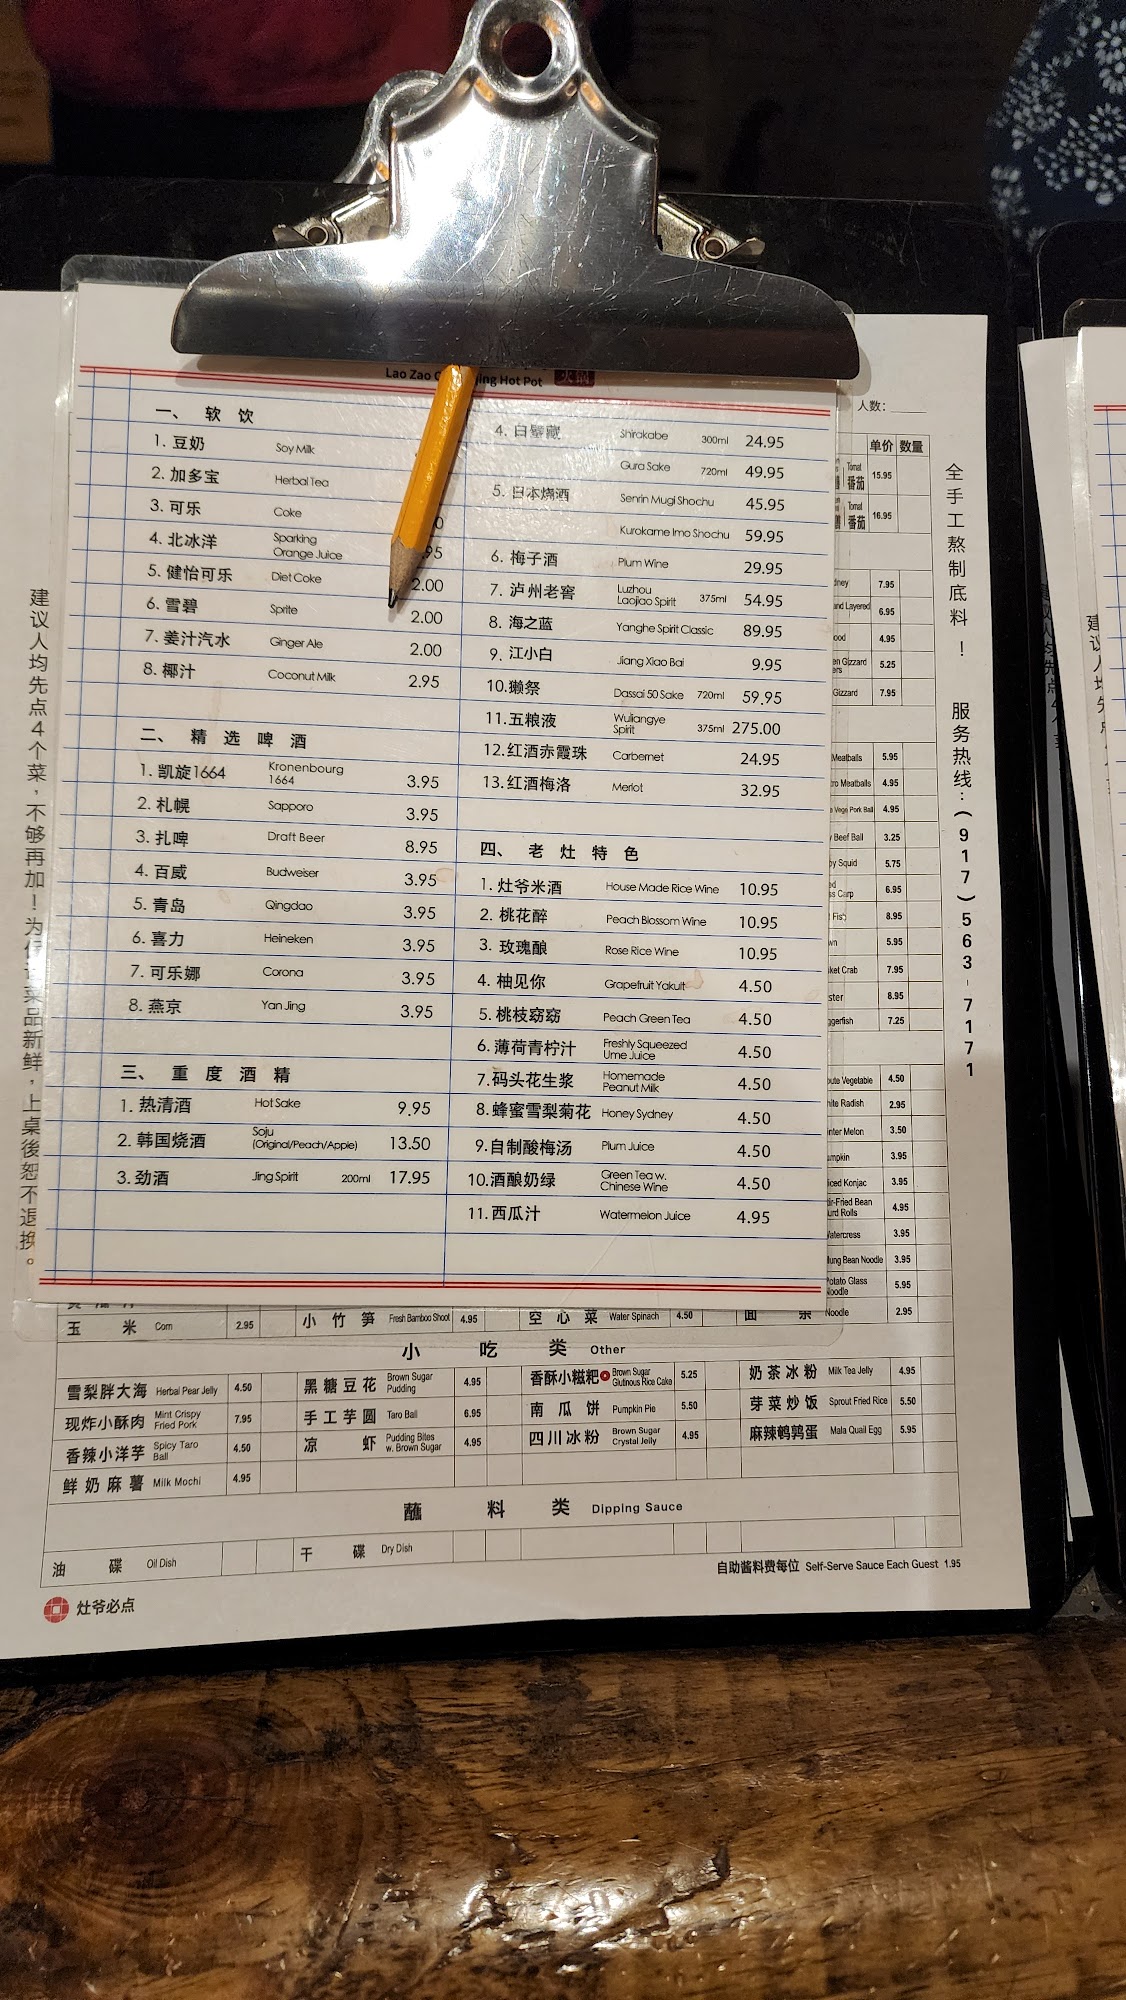 Lao Zao
jing Hot Pot
火锅
一、 软 饮
1. 豆奶 Soy Milk
2. 加多宝 Herbal Tea
3. 可乐 Coke
4. 北冰洋 Sparking Orange Juice .95
5. 健怡可乐 Diet Coke 2.00
6. 雪碧 Sprite 2.00
7. 姜汁汽水 Ginger Ale 2.00
8. 椰汁 Coconut Milk 2.95
二、 精 选 啤 酒
1. 凯旋1664 Kronenbourg 1664 3.95
2. 札幌 Sapporo 3.95
3. 扎啤 Draft Beer 8.95
4. 百威 Budweiser 3.95
5. 青岛 Qingdao 3.95
6. 喜力 Heineken 3.95
7. 可乐娜 Corona 3.95
8. 燕京 Yan Jing 3.95
三、 重 度 酒 精
1. 热清酒 Hot Sake 9.95
2. 韩国烧酒 Soju (Original/Peach/Apple) 13.50
3. 劲酒 Jing Spirit 200ml 17.95
4. 白壁藏 Shirakabe 300ml 24.95
Gura Sake 720ml 49.95
5. 日本烧酒 Senrin Mugi Shochu 45.95
Kurokame Imo Shochu 59.95
6. 梅子酒 Plum Wine 29.95
7. 泸州老窖 Luzhou Laojiao Spirit 375ml 54.95
8. 海之蓝 Yanghe Spirit Classic 89.95
9. 江小白 Jiang Xiao Bai 9.95
10. 獭祭 Dassai 50 Sake 720ml 59.95
11. 五粮液 Wuliangye Spirit 375ml 275.00
12. 红酒赤霞珠 Carbernet 24.95
13. 红酒梅洛 Merlot 32.95
四、 老 灶 特 色
1. 灶爷米酒 House Made Rice Wine 10.95
2. 桃花醉 Peach Blossom Wine 10.95
3. 玫瑰酿 Rose Rice Wine 10.95
4. 柚见你 Grapefruit Yakult 4.50
5. 桃枝窈窈 Peach Green Tea 4.50
6. 薄荷青柠汁 Freshly Squeezed Ume Juice 4.50
7. 码头花生浆 Homemade Peanut Milk 4.50
8. 蜂蜜雪梨菊花 Honey Sydney 4.50
9. 自制酸梅汤 Plum Juice 4.50
10. 酒酿奶绿 Green Tea w. Chinese Wine 4.50
11. 西瓜汁 Watermelon Juice 4.95
人数:
单价 数量
Tomat 番茄 15.95
Tomat 番茄 16.95
7.95
Layered 6.95
4.95
Gizzard 5.25
Gizzard 7.95
Meatballs 5.95
Meatballs 4.95
Vege Pork Ball 4.95
Beef Ball 3.25
Squid 5.75
Carp 6.95
8.95
5.95
Crab 7.95
8.95
7.25
Vegetable 4.50
Radish 2.95
Melon 3.50
3.95
Konjac 3.95
Rolls 4.95
Watercress 3.95
Mung Bean Noodle 3.95
Potato Glass Noodle 5.95
Noodle 2.95
玉 米 Corn 2.95
小 竹 笋 Fresh Bamboo Shoot 4.95
空 心 菜 Water Spinach 4.50
小 吃 类 Other
雪梨胖大海 Herbal Pear Jelly 4.50
黑糖豆花 Brown Sugar Pudding 4.95
香酥小糍粑 Brown Sugar Glutinous Rice Cake 5.25
奶茶冰粉 Milk Tea Jelly 4.95
现炸小酥肉 Mint Crispy Fried Pork 7.95
手工芋圆 Taro Ball 6.95
南瓜饼 Pumpkin Pie 5.50
芽菜炒饭 Sprout Fried Rice 5.50
香辣小洋芋 Spicy Taro Ball 4.50
凉 虾 Pudding Bites w. Brown Sugar 4.95
四川冰粉 Brown Sugar Crystal Jelly 4.95
麻辣鹌鹑蛋 Mala Quail Egg 5.95
鲜奶麻薯 Milk Mochi 4.95
蘸 料 类 Dipping Sauce
油 碟 Oil Dish
干 碟 Dry Dish
自助酱料费每位 Self-Serve Sauce Each Guest 1.95
灶爷必点
全手工熬制底料！ 服务热线：(917)563-7171
建议人均先点4个菜，不够再加！为 菜品新鲜，上桌後恕不退换。